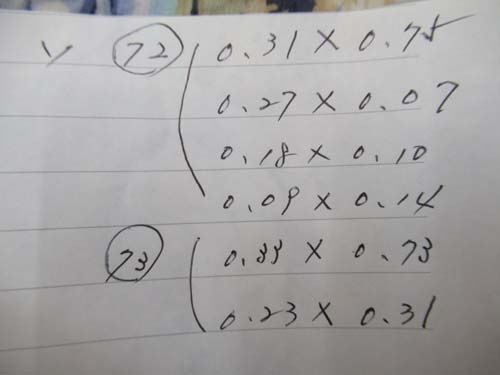 ✓ 72 0.31 × 0.75
0.27 × 0.07
0.18 × 0.10
0.09 × 0.14
73 0.33 × 0.73
0.23 × 0.31